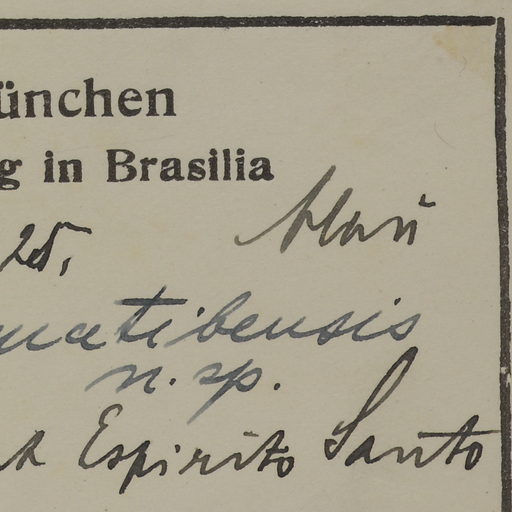 ünchen
g in Brasilia
25,
uatibensis
n. sp.
Espirito Santo